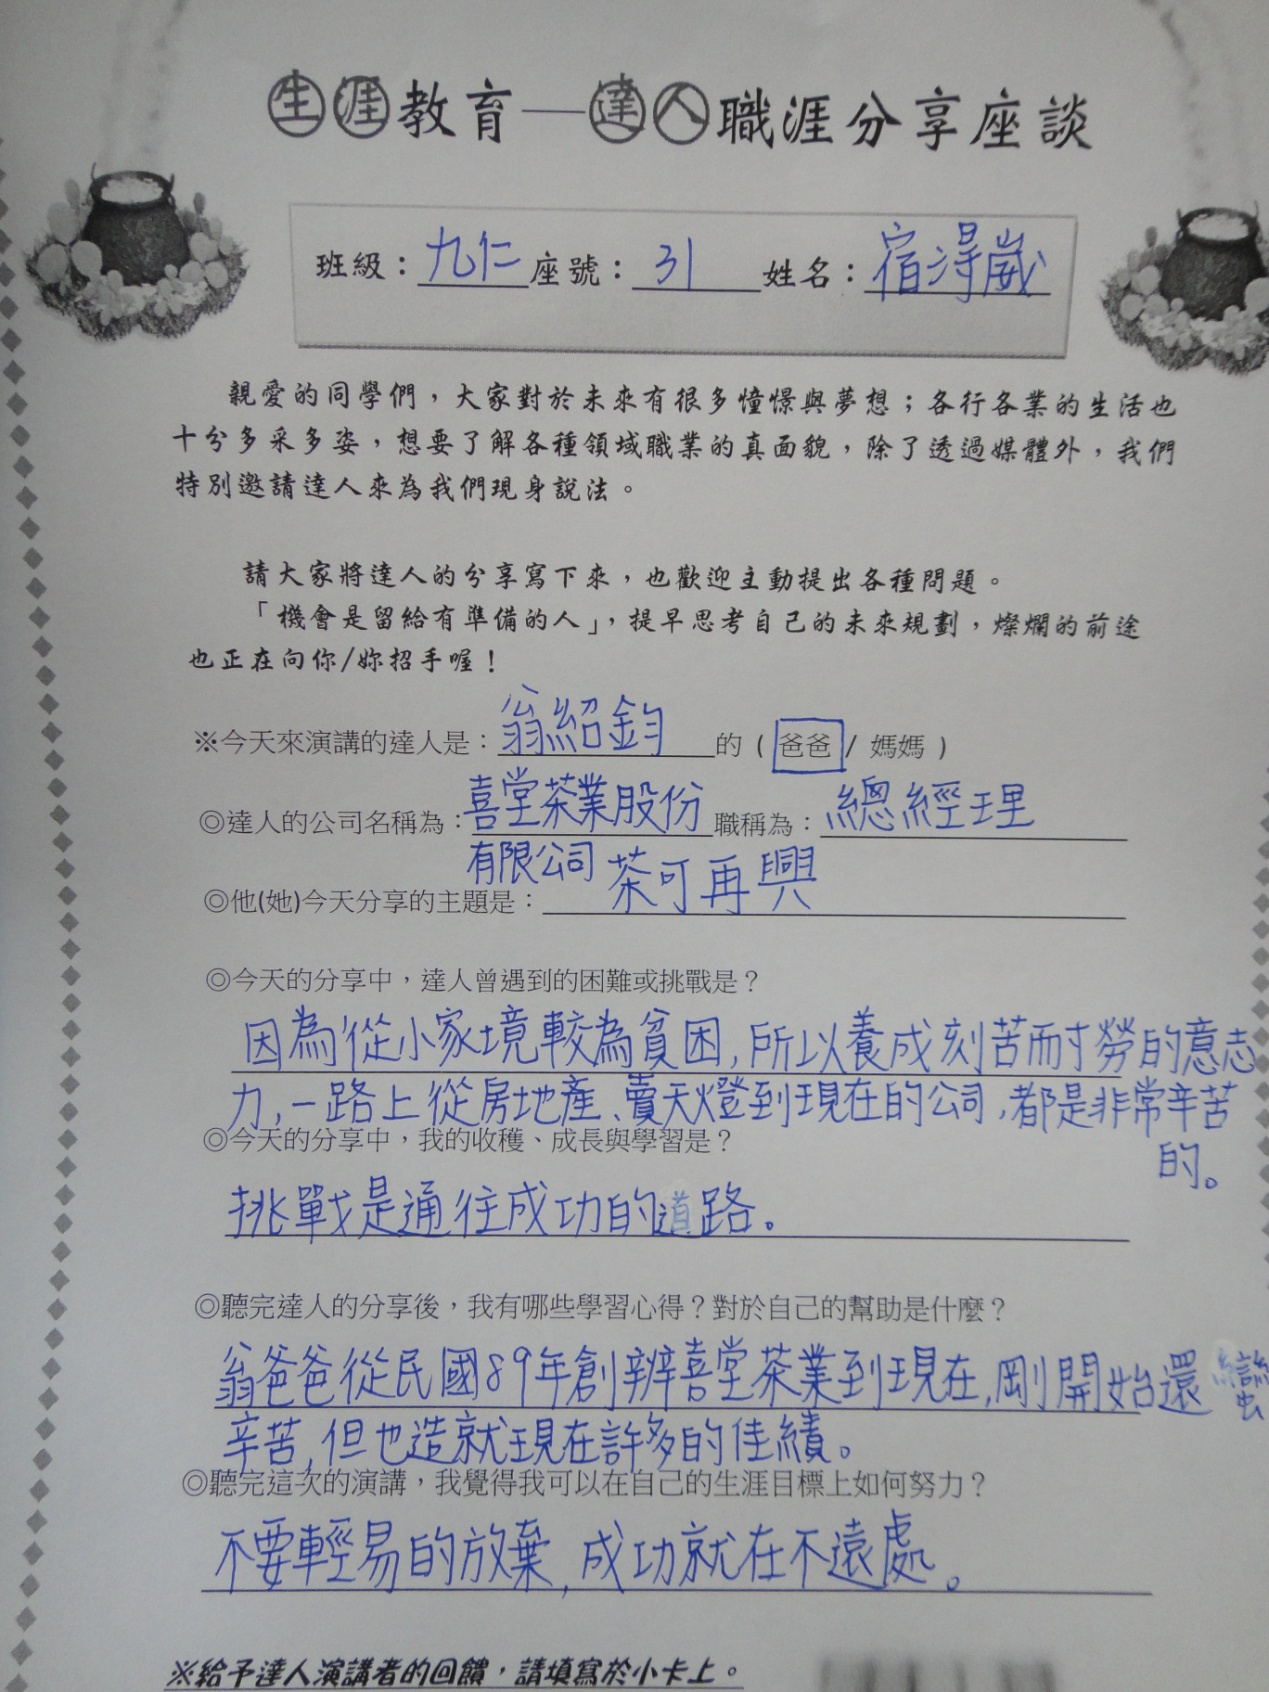 生涯教育—達人職涯分享座談
班級：九仁座號：31 姓名：宿淂崴
親愛的同學們，大家對於未來有很多憧憬與夢想；各行各業的生活也
十分多采多姿，想要了解各種領域職業的真面貌，除了透過媒體外，我們
特別邀請達人來為我們現身說法。
請大家將達人的分享寫下來，也歡迎主動提出各種問題。
「機會是留給有準備的人」，提早思考自己的未來規劃，燦爛的前途
也正在向你/妳招手喔！
※今天來演講的達人是：翁紹鈞的（爸爸/ 媽媽）
◎達人的公司名稱為：喜堂茶業股份職稱為：總經理
有限公司
◎他(她)今天分享的主題是：茶可再興
◎今天的分享中，達人曾遇到的困難或挑戰是？
因為從小家境較為貧困,所以養成刻苦耐勞的意志
力,一路上從房地產、賣天燈到現在的公司,都是非常辛苦
的。
◎今天的分享中，我的收穫、成長與學習是？
挑戰是通往成功的道路。
◎聽完達人的分享後，我有哪些學習心得？對於自己的幫助是什麼？
翁爸爸從民國89年創辦喜堂茶業到現在,剛開始還蠻
辛苦,但也造就現在許多的佳績。
◎聽完這次的演講，我覺得我可以在自己的生涯目標上如何努力？
不要輕易的放棄,成功就在不遠處。
※給予達人演講者的回饋，請填寫於小卡上。